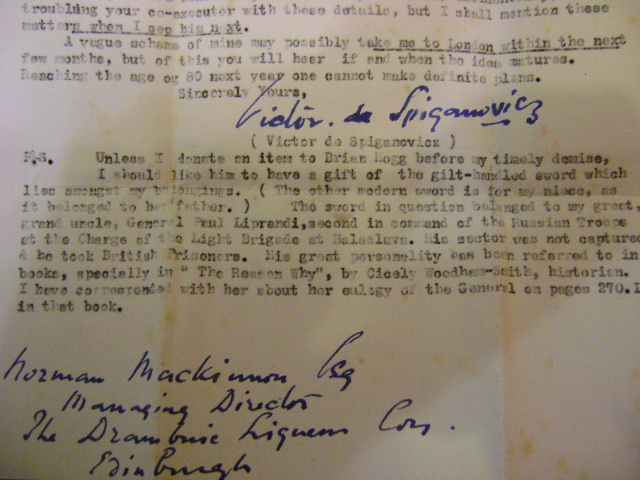 troubling your co-executor with these details, but I shall mention these
matters when I see him next.
A vague scheme of mine may possibly take me to London within the next
few months, but of this you will hear if and when the idea matures.
Reaching the age og 80 next year one cannot make definite plans.
Sincerely Yours,
Victor. de Spiganovicz
( Victor de Spiganovicz )
P.S. Unless I donate an item to Brian Logg before my timely demise,
I should like him to have a gift of the gilt-handled sword which
lies amongst my belongings. ( The other modern sword is for my niece, as
it belonged to her father. ) The sword in question belonged to my great,
grand uncle, General Paul Liprandi, second in command of the Russian Troops
at the Charge of the Light Brigade at Balaclava. His sector was not captured
& he took British Prisoners. His great personality has been referred to in
books, specially in " The Reason Why", by Cicely Woodham-Smith, historian.
I have corresponded with her about her eulogy of the General on pages 270.1
in that book.
Norman Mackinnon Esq
Managing Director
The Drambuie Liqueur Coy.
Edinburgh